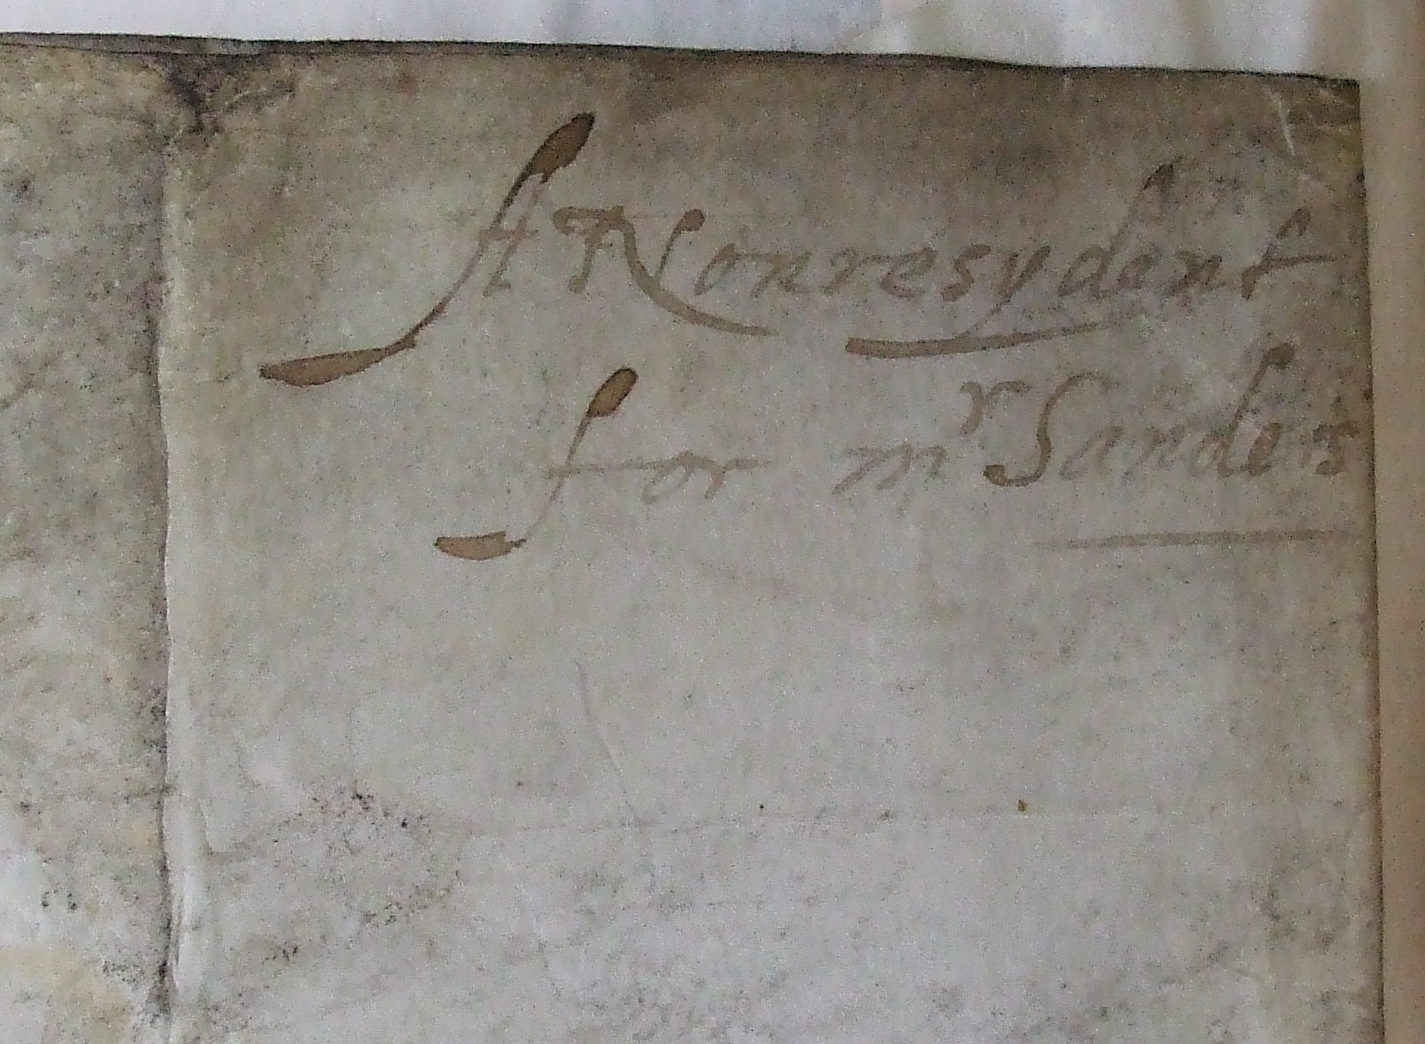 A Nonresydent
for mr Sanders